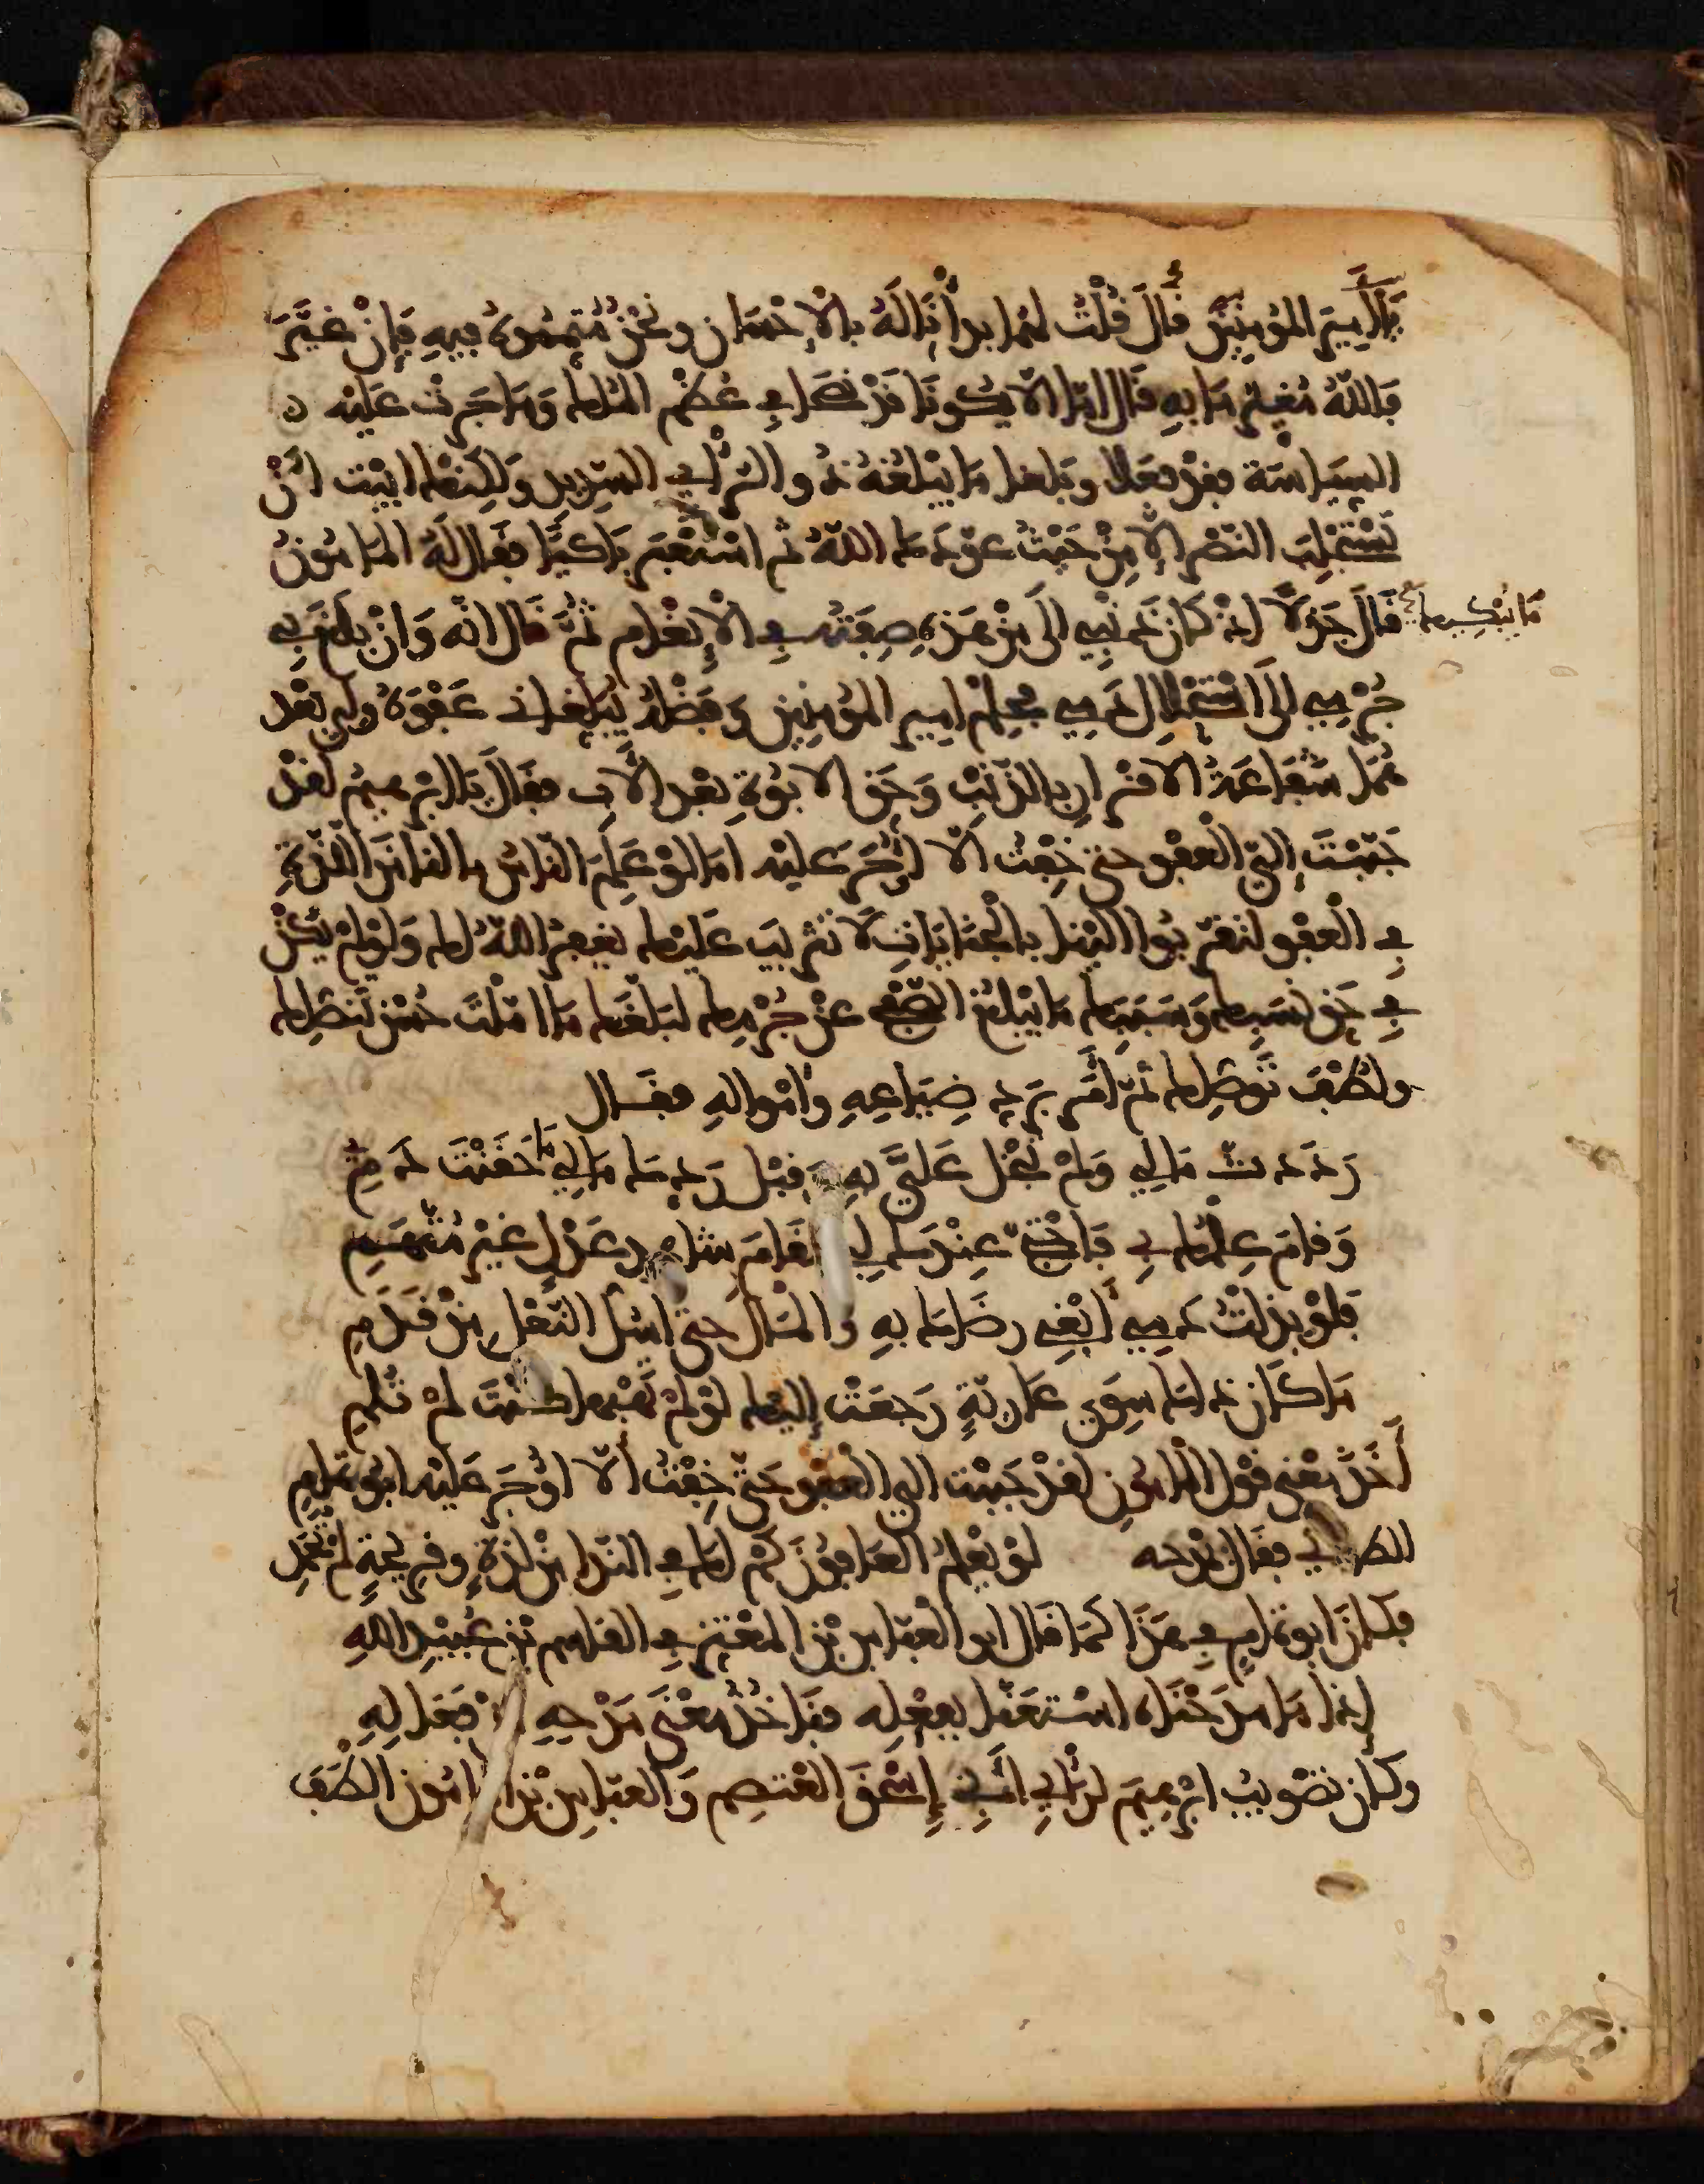 يا أمير المؤمنين قال قلت لهما بدأنا له بالإحسان ونحن مستمرون فيه فإن غير
فالله مغير ما به قال أما ألا يكونا قد نصحا في عظم الملك وما جرت عليه
السياسة فقد فعلا وبلغا ما يبلغه ذو الرأي السديد ولكنك أبيت أن
تستجلب النصر إلا من حيث عودك الله ثم استعبر باكيا فقال له المأمون
ما يبكيك قال جذلا إذ كان ذنبي إلى من هذه صفته في الإنعام ثم قال إنه وإن بلغ بي
جرمي إلى استحلال دمي فحلم أمير المؤمنين وفضله يبلغاني عفوه ولي بعد
هما شفاعة الاقرار بالذنب وحق الابوة بعد الأب فقال يا ابرهيم لقد
حببت إلي العفو حتى خفت ألا أوجر عليه أما لو علم الناس ما لنا من اللذة
في العفو لتقربوا إلينا بالجنايات لا تثريب عليك يغفر الله لك ولو لم يكن
في حق نسبك وسببك ما يبلغ الصفح عن جرمك لبلغك ما املت حسن تنصلك
ولطف توصلك ثم أمر برد ضياعه وأمواله فقال
رددت مالي ولم تبخل علي به وقبل ردك مالي ما حقنت دمي
وقام علمك بي فاحتج عندك لي مقام شاهد عدل غير متهم
فلو بذلت دمي أبغي رضاك به والمال حتى اسل النعل من قدمي
ما كان ذاك سوى عارية رجعت إليك لو لم تهبها كنت لم تلم
أخذ معنى قول المأمون لقد حببت الي العفو حتى خفت ألا أوجر عليه ابو تمام
الطائي فقال يمدحه لو يعلم العافون كم لك في الندا من لذة وقريحة لم تحمد
فكان ابو تمام في هذا كما قال ابو العباس بن المعتز في القاسم بن عبيد الله
إذا ما مدحناه استعنا بفعله فنأخذ معنى مدحه من فعاله
وكان تصويب ابرهيم لرأي أبي إسحق المعتصم والعباس بن المامون ألطف